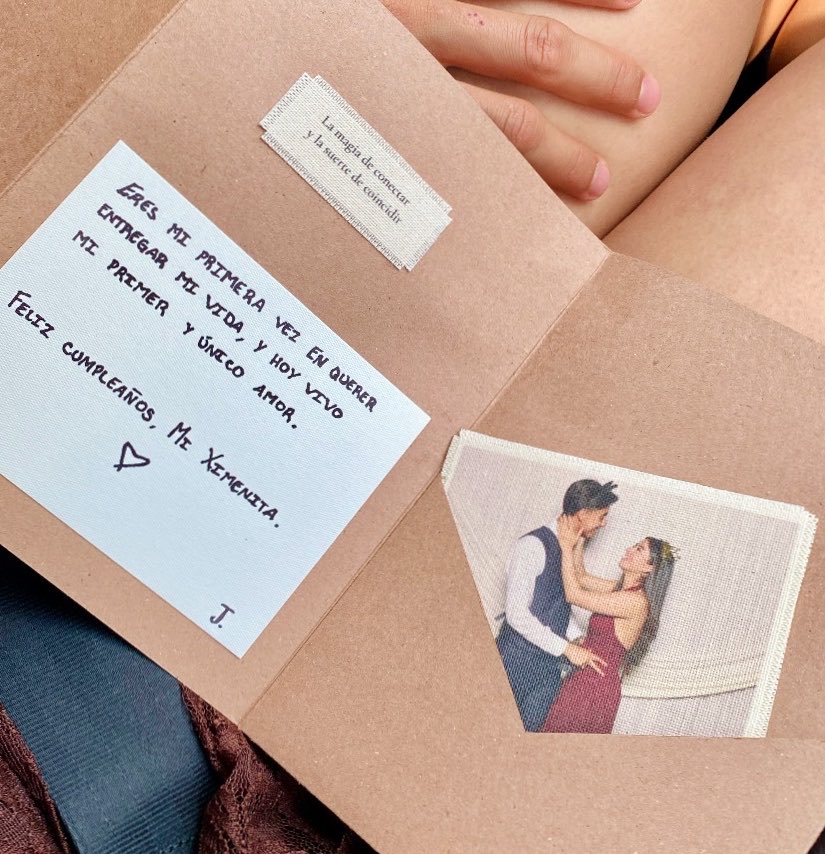 La magia de conectar
y la suerte de coincidir
ERES MI PRIMERA VEZ EN QUERER
ENTREGAR MI VIDA, Y HOY VIVO
MI PRIMER Y ÚNICO AMOR.
FELIZ CUMPLEAÑOS, MI XIMENITA.
J.